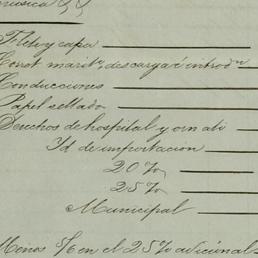 Flete y capa
Corrot marítº, descarga é introdn
Conducciones
Papel sellado
Derechos de hospital y orn ati
Id de importacion
20 %
25 %
Municipal
Menos 5/6 en el 25% adicional